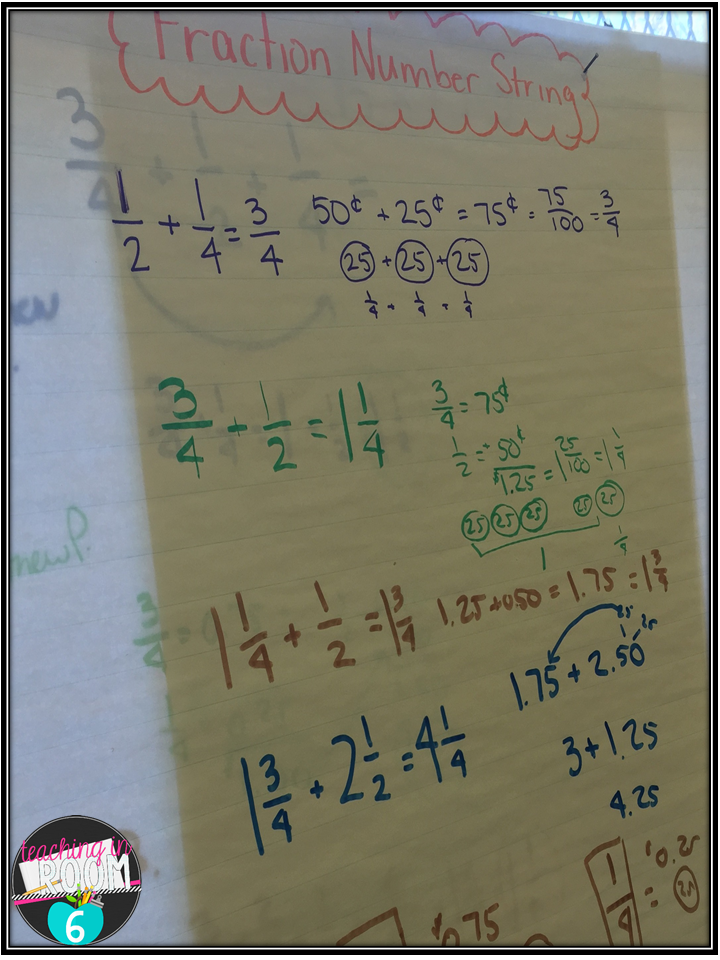 Fraction Number String
3/4 + 1/2 + 1/4 =
1/2 + 1/4 = 3/4 50¢ + 25¢ = 75¢ = 75/100 = 3/4
25 + 25 + 25
1/4 + 1/4 + 1/4
3/4 + 1/2 = 1 1/4 3/4 = 75¢
1/2 = + 50¢
$1.25 = 1 25/100 = 1 1/4
25 25 25 25 25
1 1/4
new?
1 1/4 + 1/2 = 1 3/4 1.25 + 0.50 = 1.75 = 1 3/4
25 25
1.75 + 2.50
1 3/4 + 2 1/2 = 4 1/4
3 + 1.25
4.25
1/4 = $0.25
25
$0.75
teaching in
ROOM
6